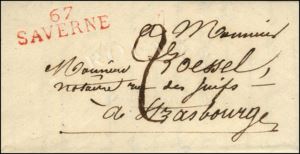 67
SAVERNE
A Monsieur
Monsieur Roessel,
notaire rue des juifs
à Strasbourg